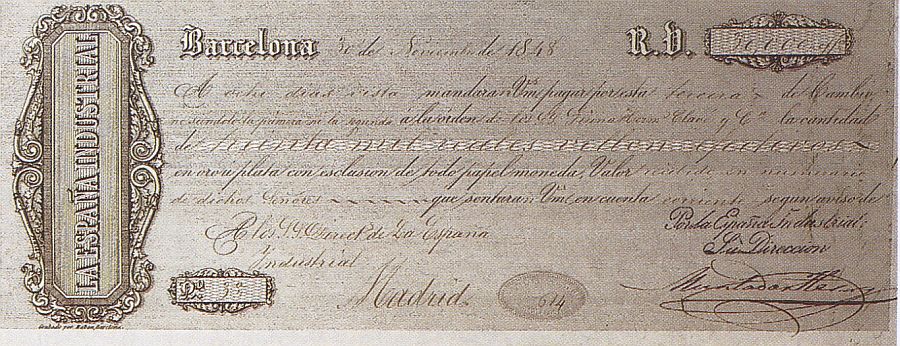 LA ESPAÑA INDUSTRIAL
Barcelona 30 de Noviembre de 1848 R.V. 30.000
A ocho dias vista mandaran Vms. pagar por esta tercera de Cambio
no siendolo la primera ni la segunda a la orden de los SS. Clavé y Ca. la cantidad
de treinta mil reales vellon efectivos
en oro u plata con esclusion de todo papel moneda, Valor recibido en numerario
de dichos Señores que sentaran Vms. en cuenta corriente segun aviso de
A los SS. Direct. de La España
Industrial
Por la España Industrial:
Su Direccion
No.
Madrid
614
Grabado por Barcelona.